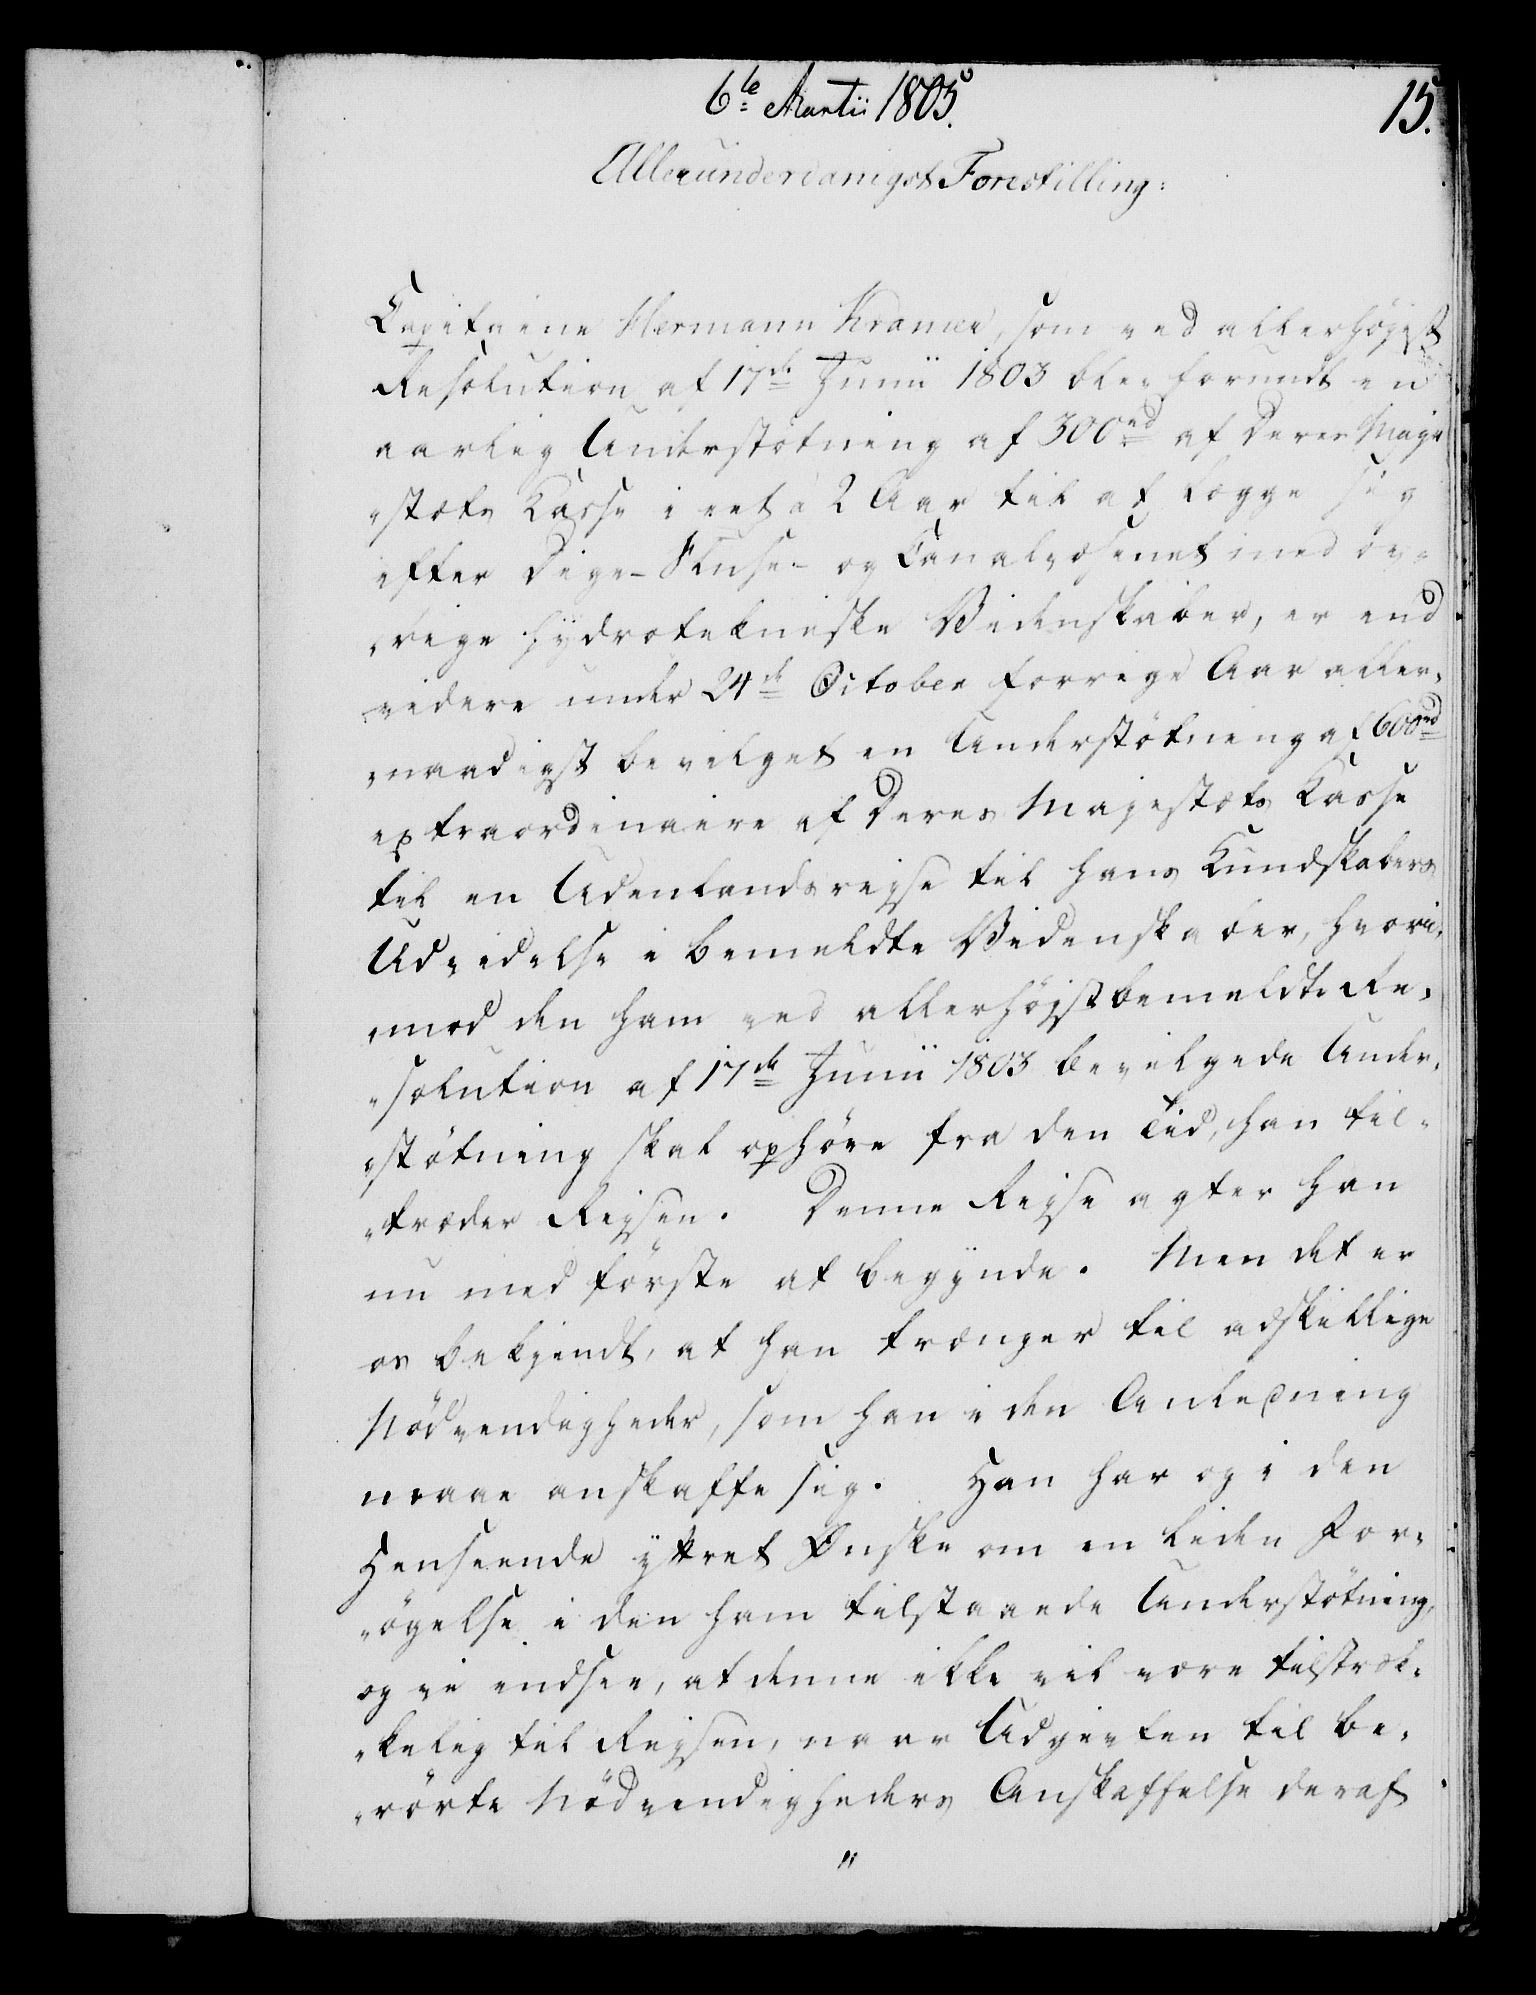 6te Martii 1805.
15.
Allerunderdanigst Forestilling:
Capitaine Hermann Kramer, som ved allerhöjest
Resolution af 17de Junii 1803 blev forundt en
aarlig Understötning af 300rd af Deres Maje
„stæts Kasse i eet à 2 Aar til at lægge sig
efter Dige- Sluse- og Canalvæsenet med öv„
„rige hydrotekniske Videnskaber, er end
videre under 24de October forrige Aar aller„
„naadigst bevilget en Understötning af 600rd
extraordinaire af Deres Majestæts Kasse
til en Udenlandsrejse til hans Kundskabers
Udvidelse i bemeldte Videnskaber, hvori„
„mod den ham ved allerhöjstbemeldte Re„
„solution af 17de Junii 1803 bevilgede Under„
„stötning skal ophöre fra den Tid, han til„
„træder Rejsen. Denne Rejse agter han
nu med förste at begynde. Men det er
os bekjendt, at han trænger til adskillige
Nödvendigheder, som han i den Anledning
maae anskaffe sig. Han har og i den
Henseende yttret Ønske om en liden For„
„ögelse i den ham tilstaaede Understötning,
og vi indsee, at denne ikke vil være tilstræk„
„kelig til Rejsen, naar Udgivten til be„
„rörte Nödvendigheders Anskaffelse deraf
„